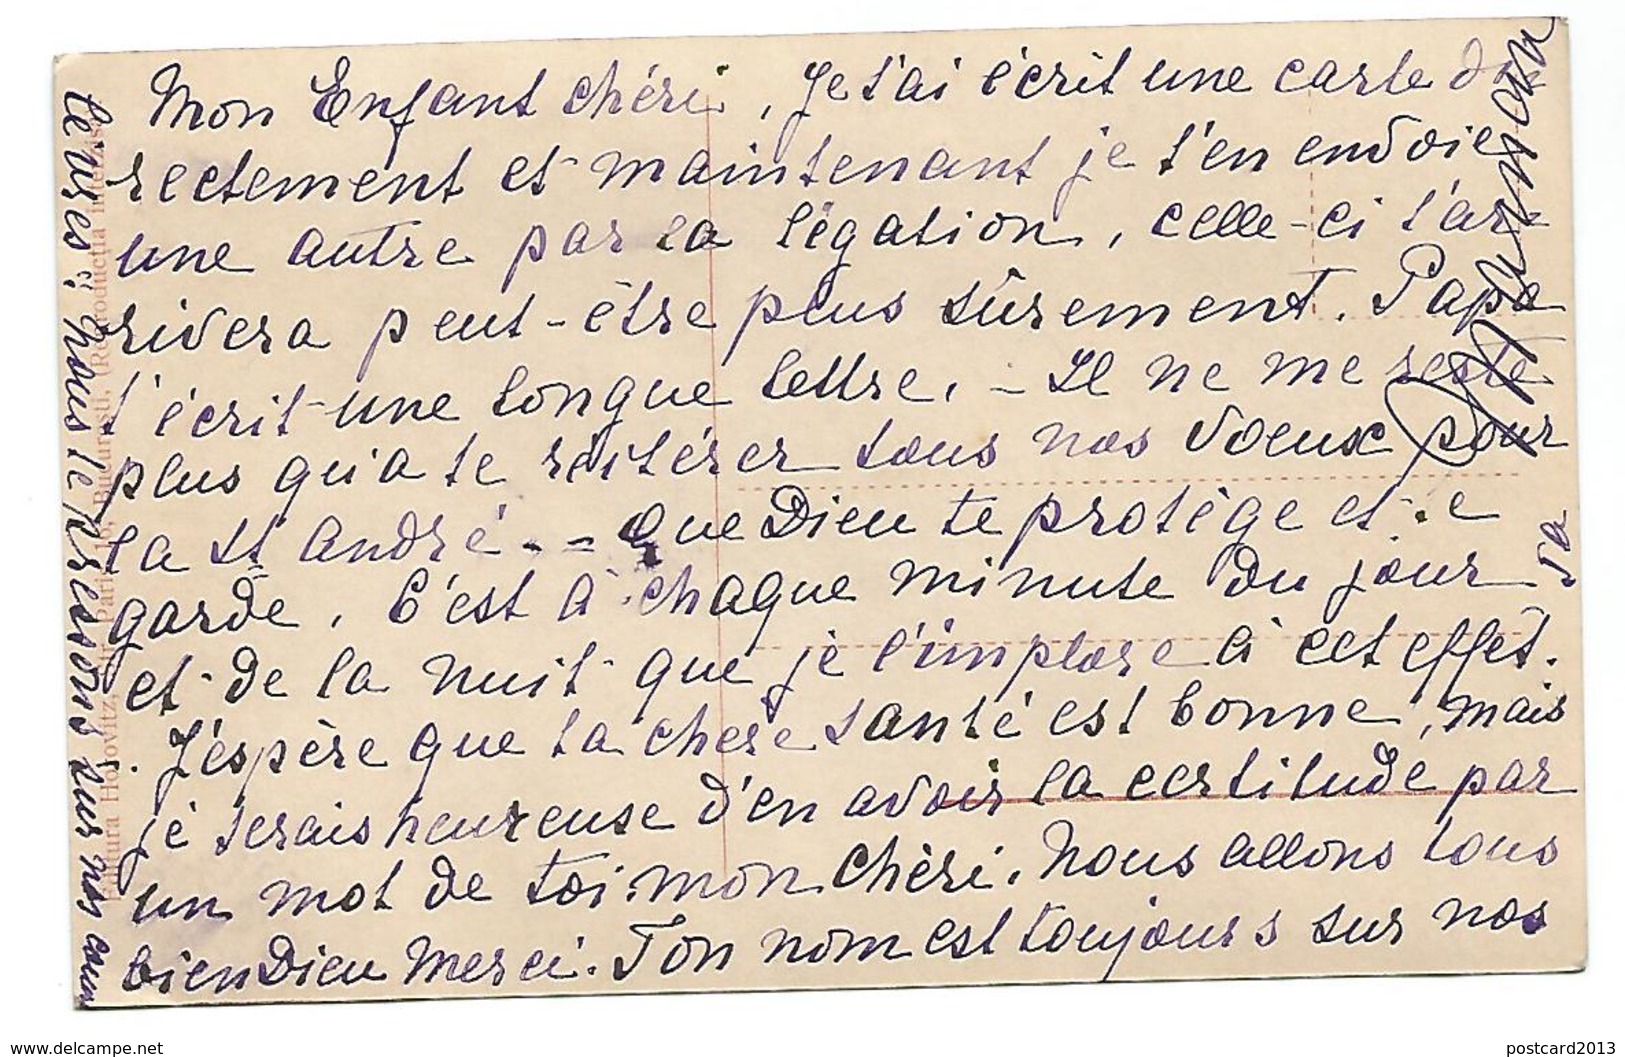 Mon Enfant chéri, Je t'ai écrit une carte di-
rectement et maintenant je t'en envoie
une autre par la légation, celle-ci t'ar-
rivera peut-être plus sûrement. Papa
t'écrit une longue lettre. - Il ne me reste
plus qu'à te réitérer tous nos voeux pour
la St André - - Que Dieu te protège et te
garde. C'est à chaque minute du jour
et de la nuit que je l'implore à cet effet.
. J'éspère que ta chere santé est bonne, mais
je serais heureuse d'en avoir la certitude par
un mot de toi, mon chéri. Nous allons tous
bien Dieu Merci. Ton nom est toujours sur nos
lèvres; nous te pressons sur nos coeurs
Ta
Maman
Editura Horovitz, Str. Paris 16, Bucuresti, (Reproductia interzisa)
www.delcampe.net
postcard2013